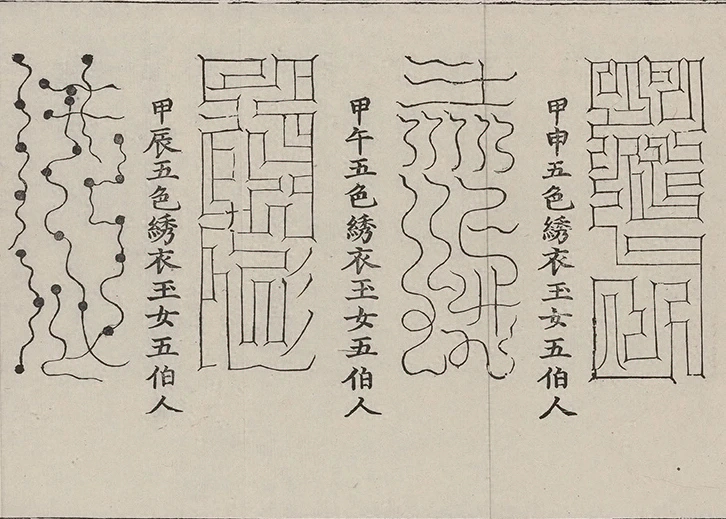 甲申五色綉衣玉女五伯人
甲午五色綉衣玉女五伯人
甲辰五色綉衣玉女五伯人